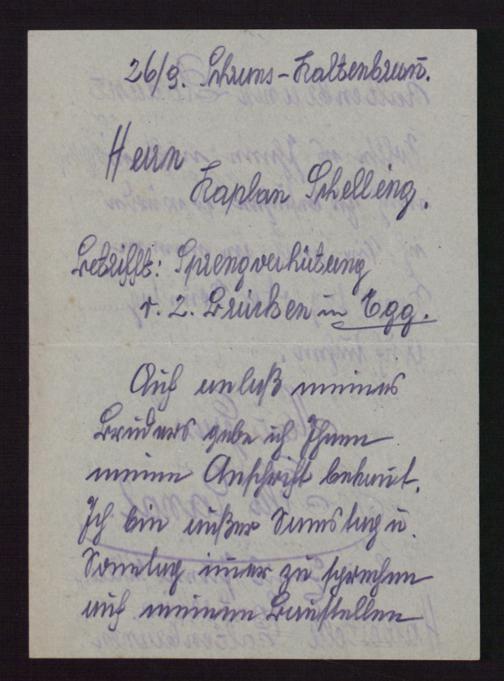 26/9. Schruns-Kaltenbrunn.
Herrn
Kaplan Schelling.
Betrifft: Sprengverhütung
v. 2. Brücken in Egg.
Auf anlaß meines
Bruders gebe ich Ihnen
meine Anschrift bekannt.
Ich bin außer Samstag u.
Sonntag immer zu sprechen
auf meinen Baustellen